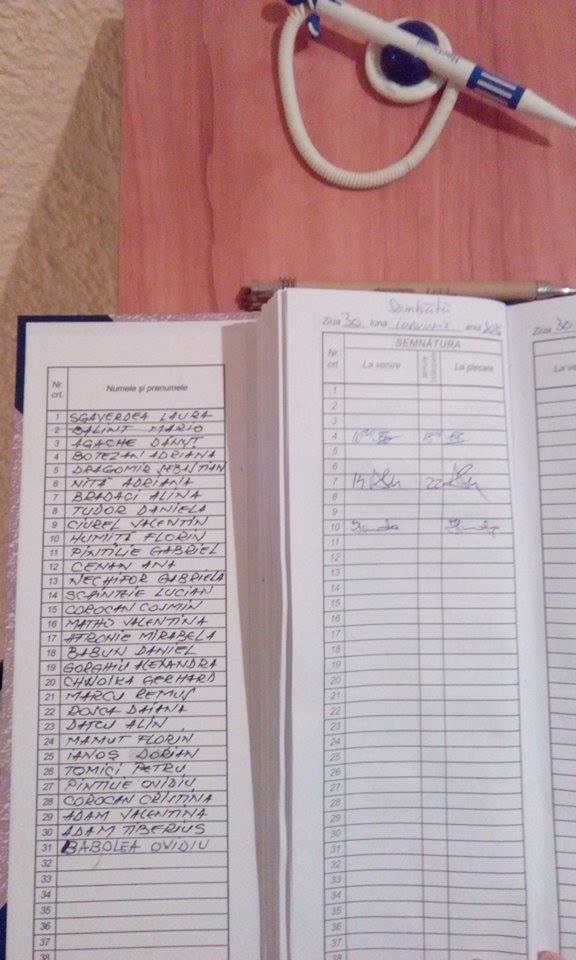 Sâmbătă
Ziua 30 luna Ianuarie anul
Ziua 30
Nr. crt. Numele și prenumele
1 SGAVERDEA LAURA
2 BALINT MARIO
3 AGACHE DĂNUȚ
4 BOTEZAN ADRIANA
5 DRAGOMIR SEBASTIAN
6 NIȚĂ ADRIANA
7 BRADACI ALINA
8 TUDOR DANIELA
9 CIUREL VALENTIN
10 HUMIȚĂ FLORIN
11 PINTILIE GABRIEL
12 CENAN ANA
13 NECHIFOR GABRIELA
14 SCÂNTEIE LUCIAN
15 COROCAN COSMIN
16 MATHO VALENTINA
17 AFRONIE MIRABELA
18 BABUN DANIEL
19 GORGHIU ALEXANDRA
20 CHWOIKA GERHARD
21 MARCU REMUS
22 DAIANA
23 DATCU ALIN
24 MAMUT FLORIN
25 IANOȘ DORIAN
26 TOMICI PETRU
27 PINTILIE OVIDIU
28 COROCAN CRISTINA
29 ADAM VALENTINA
30 ADAM TIBERIUS
31 BABOLEA OVIDIU
32
33
34
35
36
37
38
SEMNĂTURA
Nr. crt. La venire La plecare
1
2
3
4
5
6
7 14 22
8
9
10
11
12
13
14
15
16
17
18
19
20
21
22
23
24
25
26
27
28
29
30
31
32
33
34
35
36
37
38